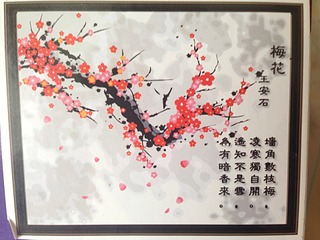 梅花
王安石
墻角數枝梅。
凌寒獨自開。
遙知不是雪。
為有暗香來。